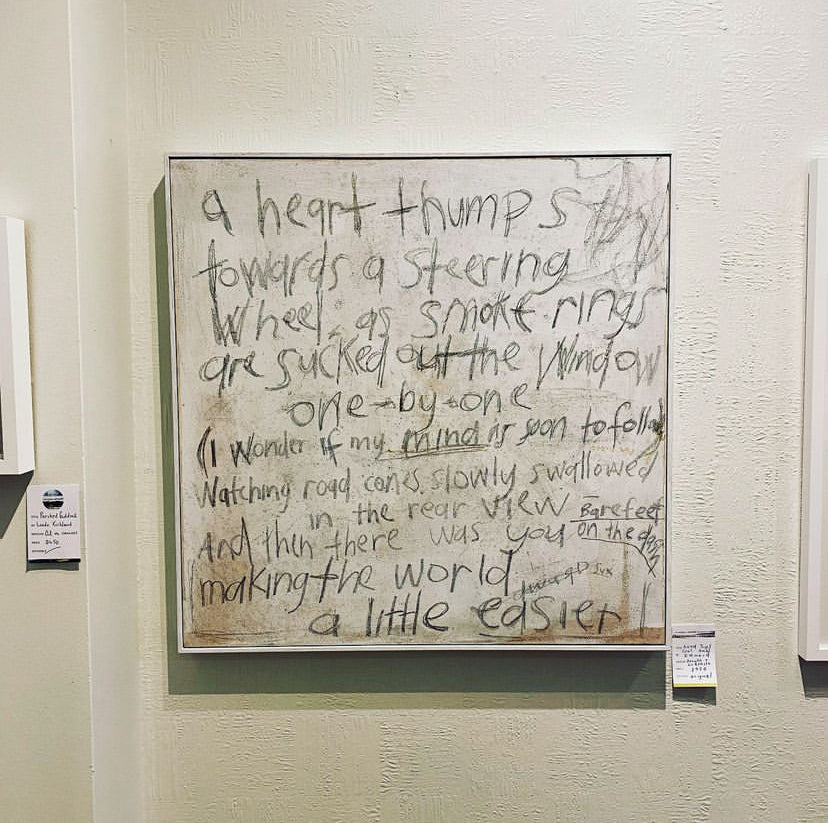 a heart thumps
towards a steering
wheel as smoke rings
are sucked out the window
one-by-one
(I wonder if my mind is soon to follow
Watching road cones slowly swallowed
in the rear view Barefeet
And then there was you on the dash
making the world
a little easier
Leeda Kirkland
Oil on canvas
$450
original